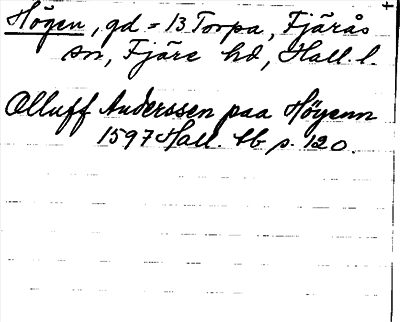 Högen, gd = 13 Torpa, Fjärås
sn, Fjäre hd, Hall. l.
Olluff Anderssen paa Högenn
1597 Hall. tb p. 120.